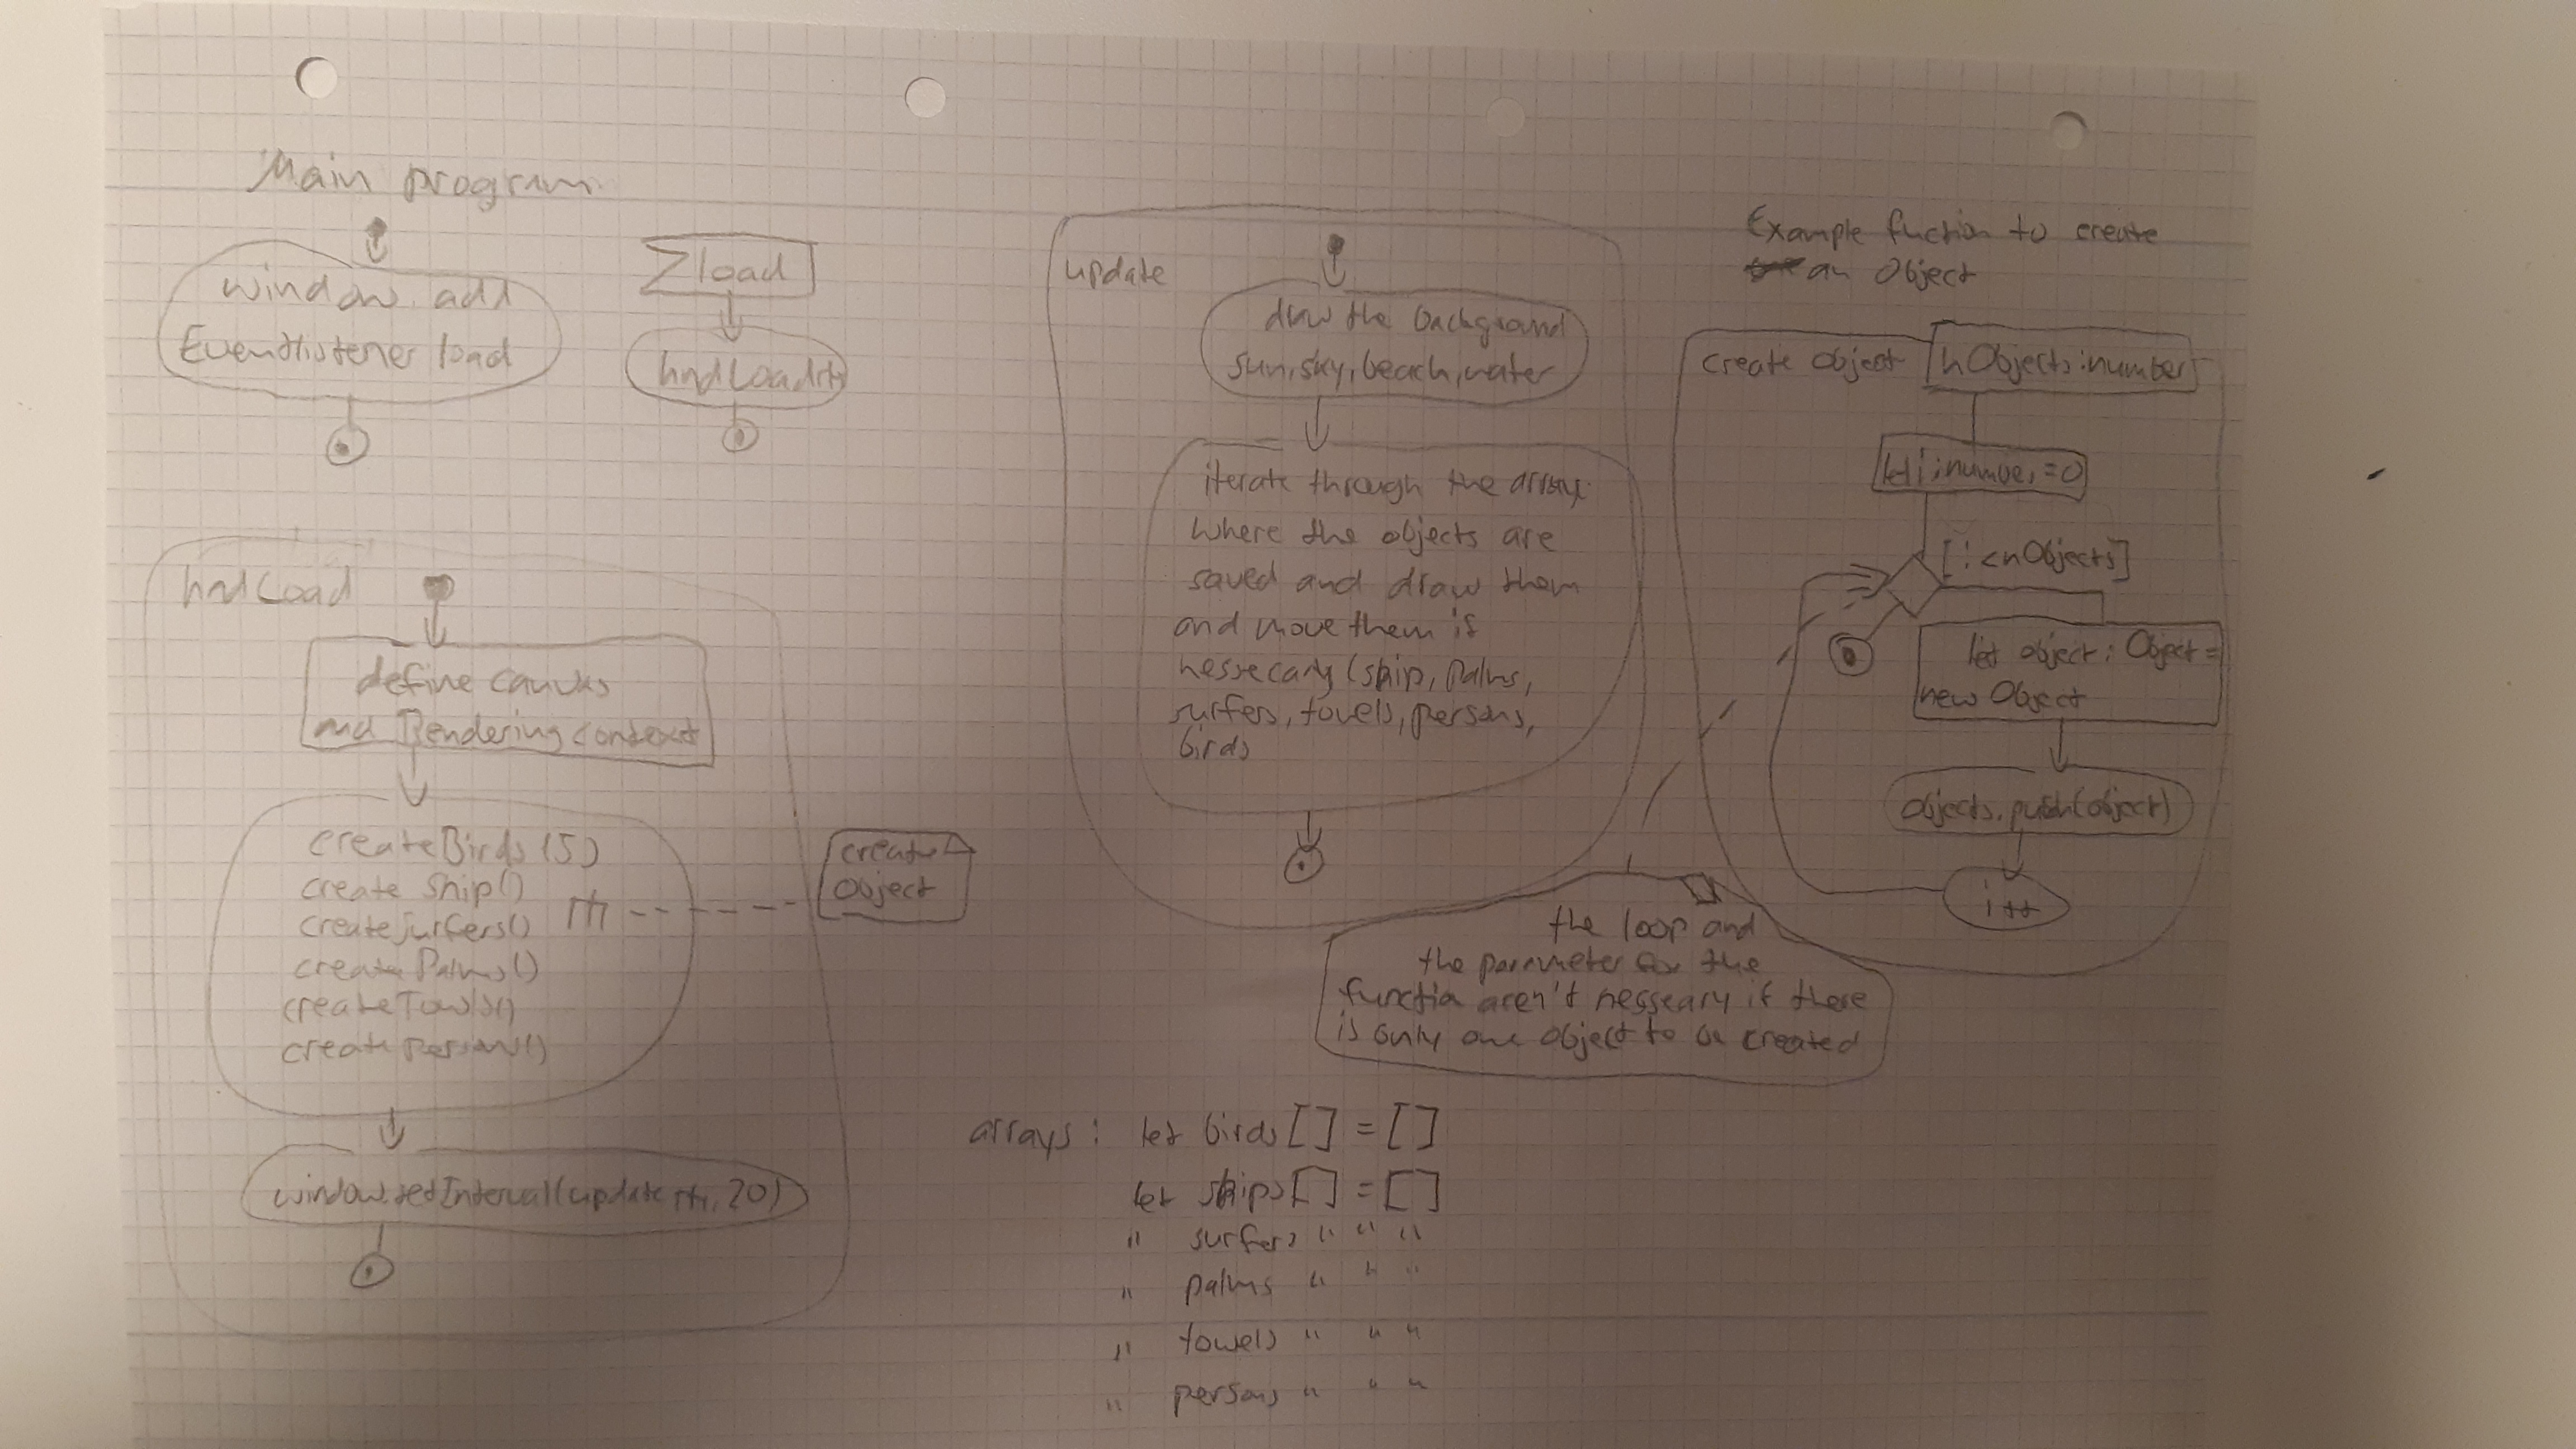 Main program
window.add
Eventlistener load
load
hndLoad
hndLoad
define canvas
and Rendering context
createBirds(5)
create Ship()
createSurfers()
createPalms()
createTowls()
createPersons()
create
Object
window.setInterval(update, 20)
update
draw the background
sun, sky, beach, water
iterate through the arrays
where the objects are
saved and draw them
and move them if
nessecary (ship, palms,
surfers, towels, persons,
birds
Example function to create
an Object
create Object nObjects: number
let i: number = 0
[i < nObjects]
let object: Object =
new Object
objects.push(object)
i++
the loop and
the parameter for the
function aren't nesseary if there
is only one object to be created
arrays: let birds[] = []
let ships[] = []
" surfers " " "
" palms " " "
" towels " " "
" persons " " "